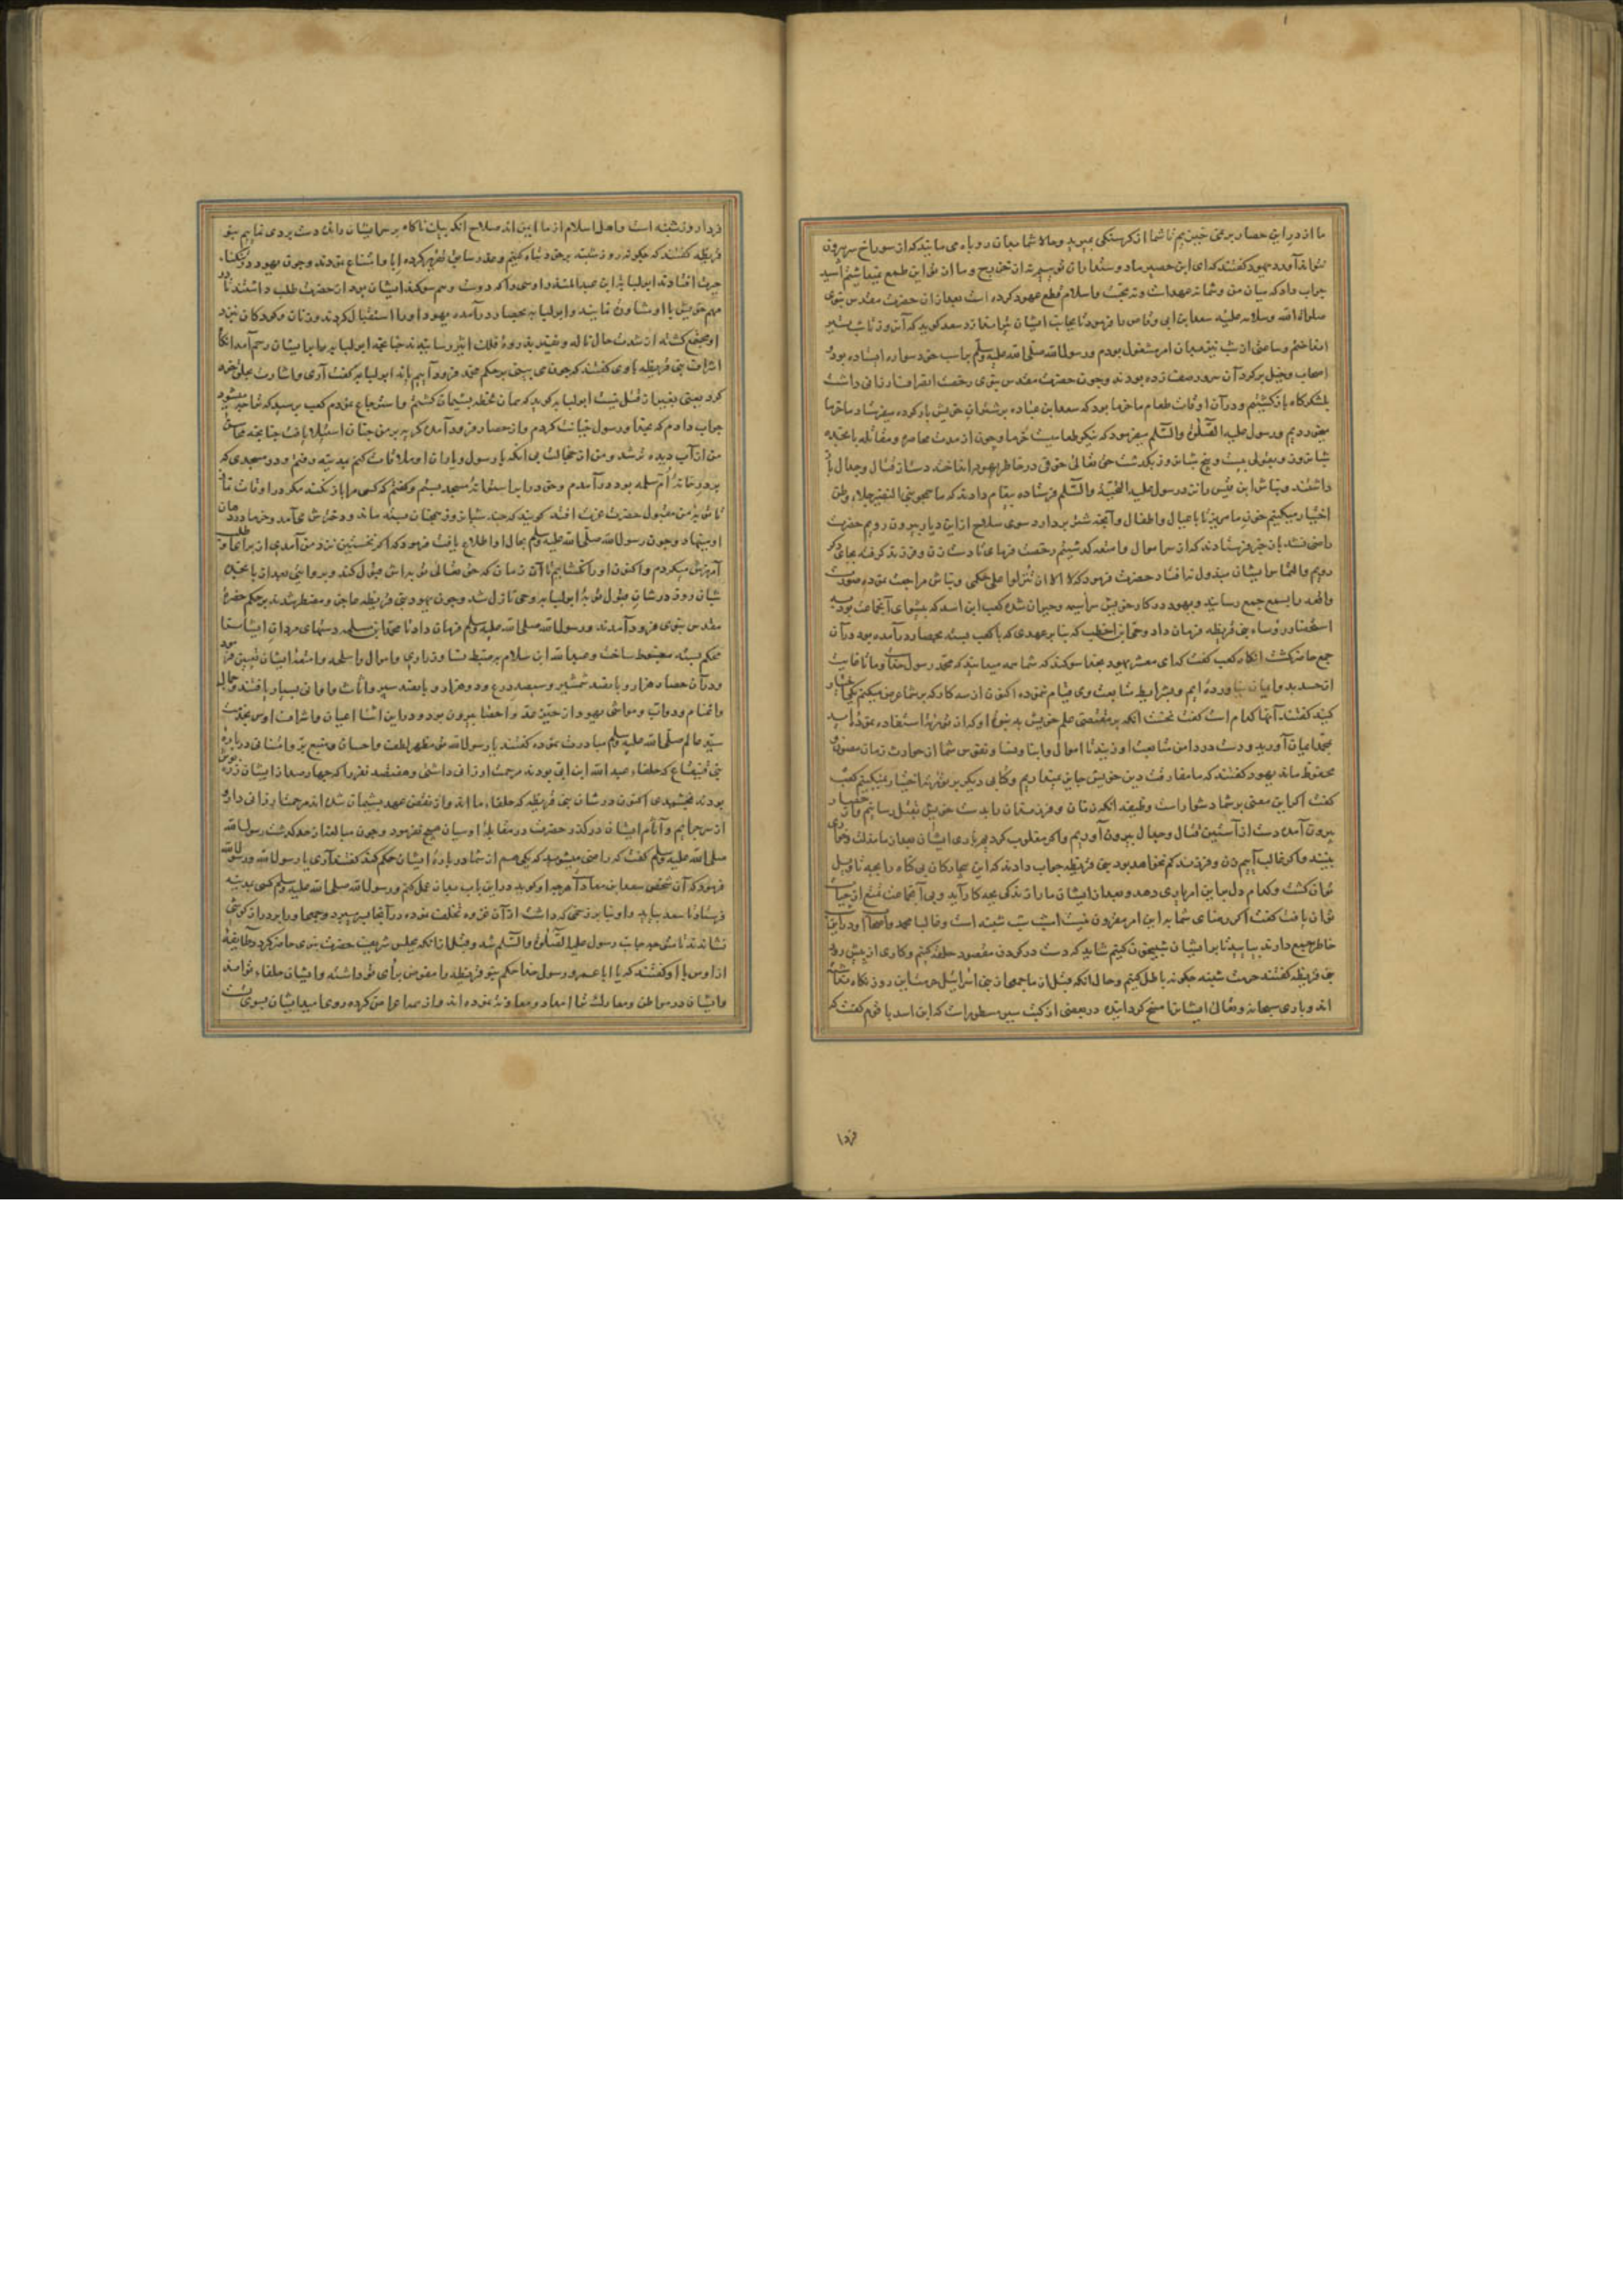 ما از در این حصار بر نمی خیزیم تا شما از کرسنکی بمیرید و حالا شما بسان روباه می مانید که از سوراخ سر بیرون
نتواند آورد یهود کفتند که ای ابن حصیر ما دوستداران توییم نه از خزرج و ما از تو این طمع نمیداشتیم اسید
جواب داد که میان من و شما نه عهدست و نه محبت و اسلام قطع عهود کرده است بعد از ان حضرت مقدس نبوی
صلوات الله و سلامه علیه سعد ابن ابی وقاص را فرمود تا بجانب ایشان تیر اندازد سعد کوید که آن روز تا شب تیر
انداختم و ساعتی از شب نیز بهمان امر مشغول بودم و رسول الله صلی الله علیه وسلم بر اسب خود سواره ایستاده بود
اصحاب و خیل بر کرد آن سرور صف زده بودند و چون حضرت مقدس نبوی رخصت انصراف ارزانی داشت
بلشکرکاه باز کشتیم و در آن اوقات طعام ما خرما بود که سعد ابن عباده بر شتران خویش بار کرده میفرستاد ما خرما
میخوردیم و رسول علیه الصلوة والسلم میفرمود که نیکو طعامیست خرما و چون از مدت محاصره و مقاتله پانزده
شبانروز و بقولی بیست و پنج شبانروز بکذشت حق تعالی خوفی در خاطر یهود انداخت دست از قتال و جدال باز
داشتند و نباش ابن قیس را نزد رسول علیه التحیة والسلم فرستاده پیغام دادند که ما همچو بنی النضیر جلاء وطن
اختیار میکنیم خون ما مریز تا با عیال و اطفال و آنچه شتر بردارد سوی سلاح از این دیار بیرون رویم حضرت
راضی نشد باز خبر فرستادند که از سر اموال و امتعه کذشتیم رخصت فرمای تا دست زن و فرزند کرفته بجای دکر
رویم والتماس ایشان مبذول نیافتاد حضرت فرمود که لا الا ان تنزلوا علی حکمی و نباش مراجعت نموده صورت
واقعه را بسمع جمع رسانید و یهود در کار خویش سراسیمه و حیران شده کعب ابن اسد که پیشوای آنجماعت بود به
استحضار رؤساء بنی قریظه فرمان داد و حی ابن اخطب که بنا بر عهدی که با کعب بسته بحصار درآمده بود در آن
جمع حاضر کشت انکاه کعب کفت که ای معشر یهود بخدا سوکند که شما همه میدانید که محمد رسول خداست و ما تا غایت
از حسد بدو ایمان نیاورده ایم و بشرایط متابعت وی قیام ننموده اکنون از سه کار که بر شما عرض میکنم یکی اختیار
کنید کفتند آنها کدام است کفت نخست انکه بر مقتضی علم خویش به نبوت او که از توریة استفاده نموده اید
بمحمد ایمان آورید و دست در دامن متابعت او زنید تا اموال و ابنا و نسا و نفوس شما از حوادث زمان مصون و
محفوظ ماند یهود کفتند که ما مفارقت دین خویش جایز نمیداریم و کتابی دیکر بر توریة اختیار نمیکنیم کعب
کفت اکر این معنی بر شما دشوار است وظیفه آنکه زنان و فرزندان را بدست خویش بقتل رسانیم و از حصار
بیرون آمده دست از آستین قتال و جدال بیرون آوریم و اکر مغلوب کردیم باری ایشان بعد از ما مذلت و خواری
نبینند و اکر غالب آییم زن و فرزند کم نخواهد بود بنی قریظه جواب دادند که این بیچارکان بی کناه را بچه تاویل
توان کشت و کدام دل بر این امر یاری دهد و بعد از ایشان ما را زندکی بچه کار آید و بی آنجماعت تمتع از حیات
توان یافت کفت اکر رضای شما به این امر مقرون نیست امشب شب شنبه است و غالبا محمد و اصحاب او در این شب
خاطر جمع دارند بیایید تا بر ایشان شبیخون کنیم شاید که دست در کردن مقصود حلقه کنیم و کاری از پیش رود
بنی قریظه کفتند حرمت شنبه چکونه باطل کنیم و حال انکه قبل از ما جمعی از بنی اسرائیل حرمت این روز نکاه نداشته
اند و باری سبحانه و تعالی ایشانرا مسخ کردانیده در بعضی از کتب سیر مسطور است که ابن اسد با قوم کفت که
فردا
فردا روز شنبه است و اهل اسلام از ما ایمن اند صلاح انکه بیات ناکاه بر سر ایشان رانده دست بردی نماییم بنو
قریظه کفتند که چکونه روز شنبه بر خود تباه کنیم و عذر سابق تقریر کرده ابا و امتناع نمودند و چون یهود در تنکناء
حیرت افتادند ابو لبابه ابن عبد المنذر اوسی را که دوست و هم سوکند ایشان بود از حضرت طلب داشتند تا در
مهم خویش با او مشاورت نمایند و ابو لبابه بحصار درآمده یهود او را استقبال کردند و زنان و کودکان نزد
او مجتمع کشته از شدت حال ناله و نفیر بذروه فلک اثیر رسانیدند چنانچه ابو لبابه را بر ایشان رحم آمد انکاه
اشراف بنی قریظه با وی کفتند که چون می بینی بر حکم محمد فرود آییم یا نه ابو لبابه کفت آری و اشارت بحلق خود
کرد یعنی بغیر از قتل نیست ابو لبابه کوید که همان لحظه پشیمان کشتم و استرجاع نمودم کعب پرسید که ترا چه میشود
جواب دادم که با خدا و رسول خیانت کردم و از حصار فرود آمده کریه بر من چنان استیلا یافت چنانچه محاسن
من از آب دیده تر شد و من از خجالت بی انکه با رسول و یاران او ملاقات کنم بمدینه رفتم و در مسجدی که
بر در خانه ام سلمه بود درآمدم و خود را بر استوانه مسجد بستم و کفتم که کسی مرا باز نکند مکر در اوقات نماز
تا توبه من مقبول حضرت عزت افتد کویند که چند شبانروز همچنان بسته ماند و دخترش می آمد و خرما در دهان
او مینهاد و چون رسول الله صلی الله علیه وسلم بحال او اطلاع یافت فرمود که اکر نخستین نزد من آمدی از برای او طلب
آمرزش میکردم و اکنون او را نکشایم تا آن زمان که حق تعالی توبه اش قبول کند و بروایتی بعد از پانزده
شبان روز در شان قبول توبه ابو لبابه وحی نازل شد و چون یهود بنی قریظه عاجز و مضطر شدند بر حکم حضرت
مقدس نبوی فرود آمدند و رسول الله صلی الله علیه وسلم فرمان داد تا محمد ابن مسلمه دستهای مردان ایشانرا
محکم بسته مضبوط ساخت و عبد الله ابن سلام بر ضبط نسا و ذراری و اموال و اسلحه و امتعه ایشان تعیین فرمود
و در آن حصار هزار و پانصد شمشیر و سیصد درع و دو هزار و پانصد سپر و اثاث و اوانی بسیار یافتند و جمال
و اغنام و دواب و مواشی یهود از حیز عد و احصا بیرون بود و در این اثنا اعیان و اشراف اوس بخدمت
سید عالم صلی الله علیه وسلم مبادرت نموده کفتند یا رسول الله تو مظهر لطف و احسان و منبع بر و امتنانی درباره
بنی قینقاع که حلفاء عبد الله ابن ابی بودند مرحمت ارزانی داشتی و هفتصد نفر را که چهارصد از ایشان زره پوش
بودند بخشیدی اکنون در شان بنی قریظه که حلفاء ما اند و از نقض عهد پشیمان شده اند مرحمت ارزانی دار و
از سر جرایم و آثام ایشان درکذر حضرت در مقابله اوسیان هیچ نفرمود و چون مبالغه از حد کذشت رسول الله
صلی الله علیه وسلم کفت که راضی میشوید که یکی هم از شما در باره ایشان حکم کند کفتند آری یا رسول الله و رسول الله
فرمود که آن شخص سعد ابن معاذ است هر چه او کوید در این باب بدان عمل کنم و رسول الله صلی الله علیه وسلم کسی بمدینه
فرستاد تا سعد بیاید و او بنا بر زخمی که داشت از آن غزوه تخلف نموده در آنجا بسر میبرد و جمعی او را بر درازکوشی
نشاندند تا متوجه جانب رسول علیه الصلوة والسلم شد و قبل از انکه بمجلس شریف حضرت نبوی حاضر کردد طایفه
از اوس با او کفتند که یا ابا عمرو رسول خدا حکم بنو قریظه را مفوض برأی تو داشته و ایشان حلفاء تو اند
و ایشان در مواطن و معارک ترا امداد و معاونت نموده اند و از همه اعراض کرده روی امید ایشان بسوی تست